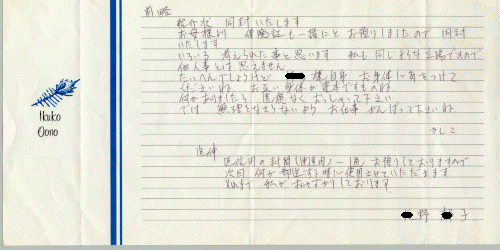 前略
紹介状 同封いたします
お母様より 保険証も一緒にと お預りしましたので 同封
いたします
いろいろ 考えられた事と思います 私も同じような立場ですので
他人事とは 思えません
たいへんでしょうけど 様自身 お身体に気をつけて
くださいね お互い身体が資本ですものね
何かありましたら 遠慮なく おっしゃって下さい
では 無理をなさらないよう お仕事 がんばって下さいね
かしこ
追伸
返信用の封筒 一通 お預りしておりますので
次回 何か郵送する時に使用させていただきます
それまで 私がおあずかりしております
野 子
Ikuko
Oono